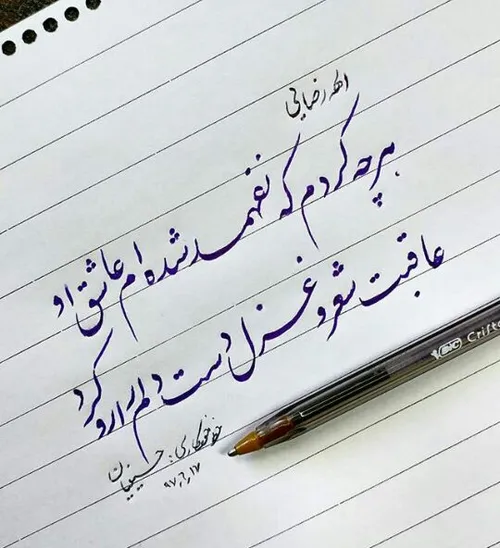 الهه رضایی
هرچه کردم که نفهمد شده ام عاشق او
عاقبت شعر و غزل دست دلم را رو کرد
خط خودکاری:
۹۷,۶,۱۷
BIC Crista